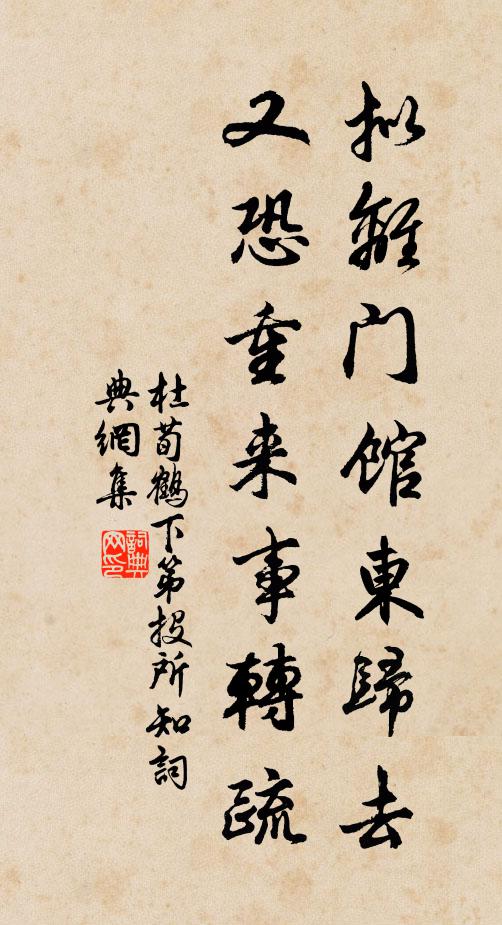 拟離门馆東歸去
又恐重来事轉疏
杜荀鶴下第投所知詞
典網集
詞典
网印